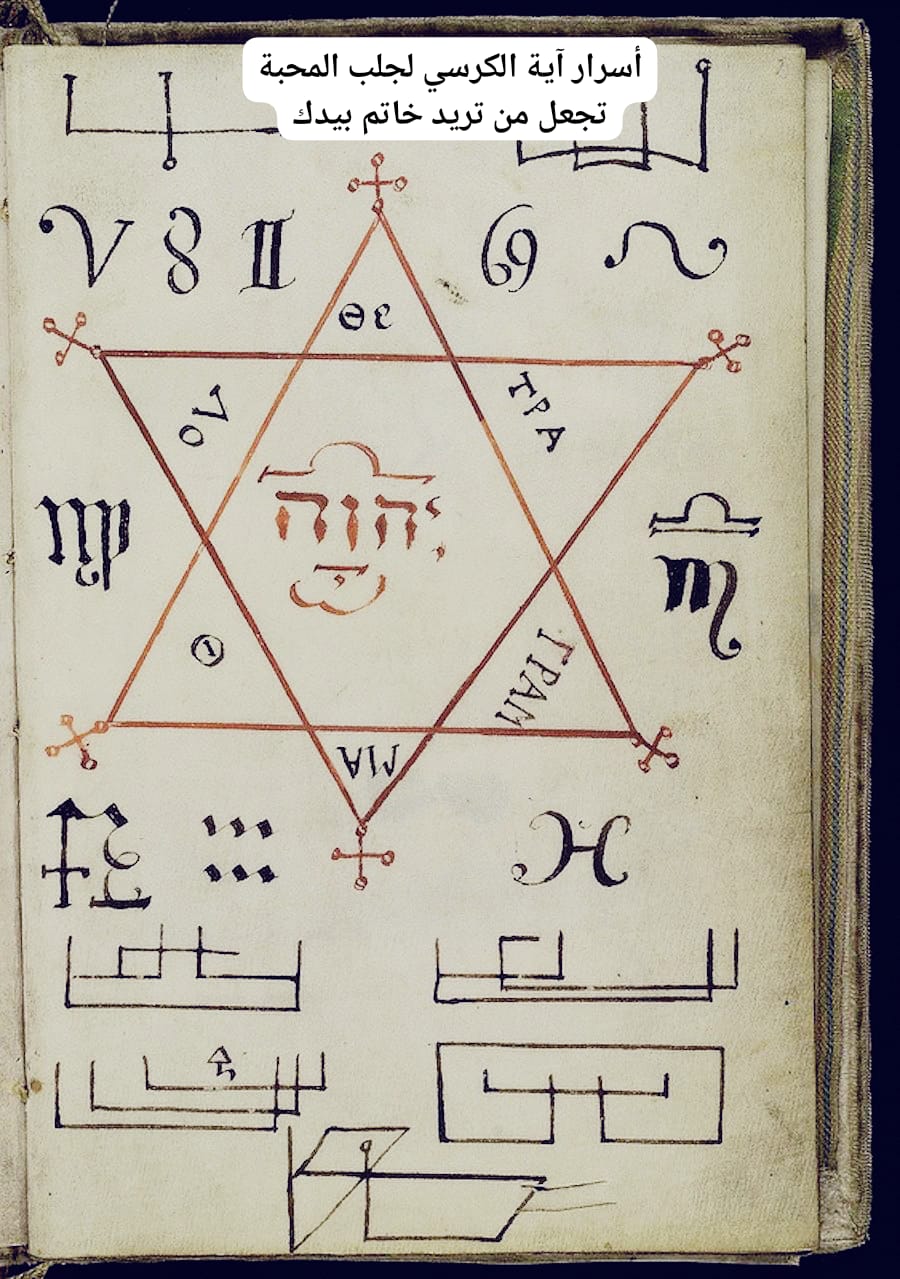 أسرار آية الكرسي لجلب المحبة
تجعل من تريد خاتم بيدك
♈ ♉ ♊ ♋ ♌
ΘΕ
ΟΥ
ΤΡΑ
יהוה
♍ ♎
♏
ΓΡΑΜ
ΜΑ
♐ ♑ ♒ ♓